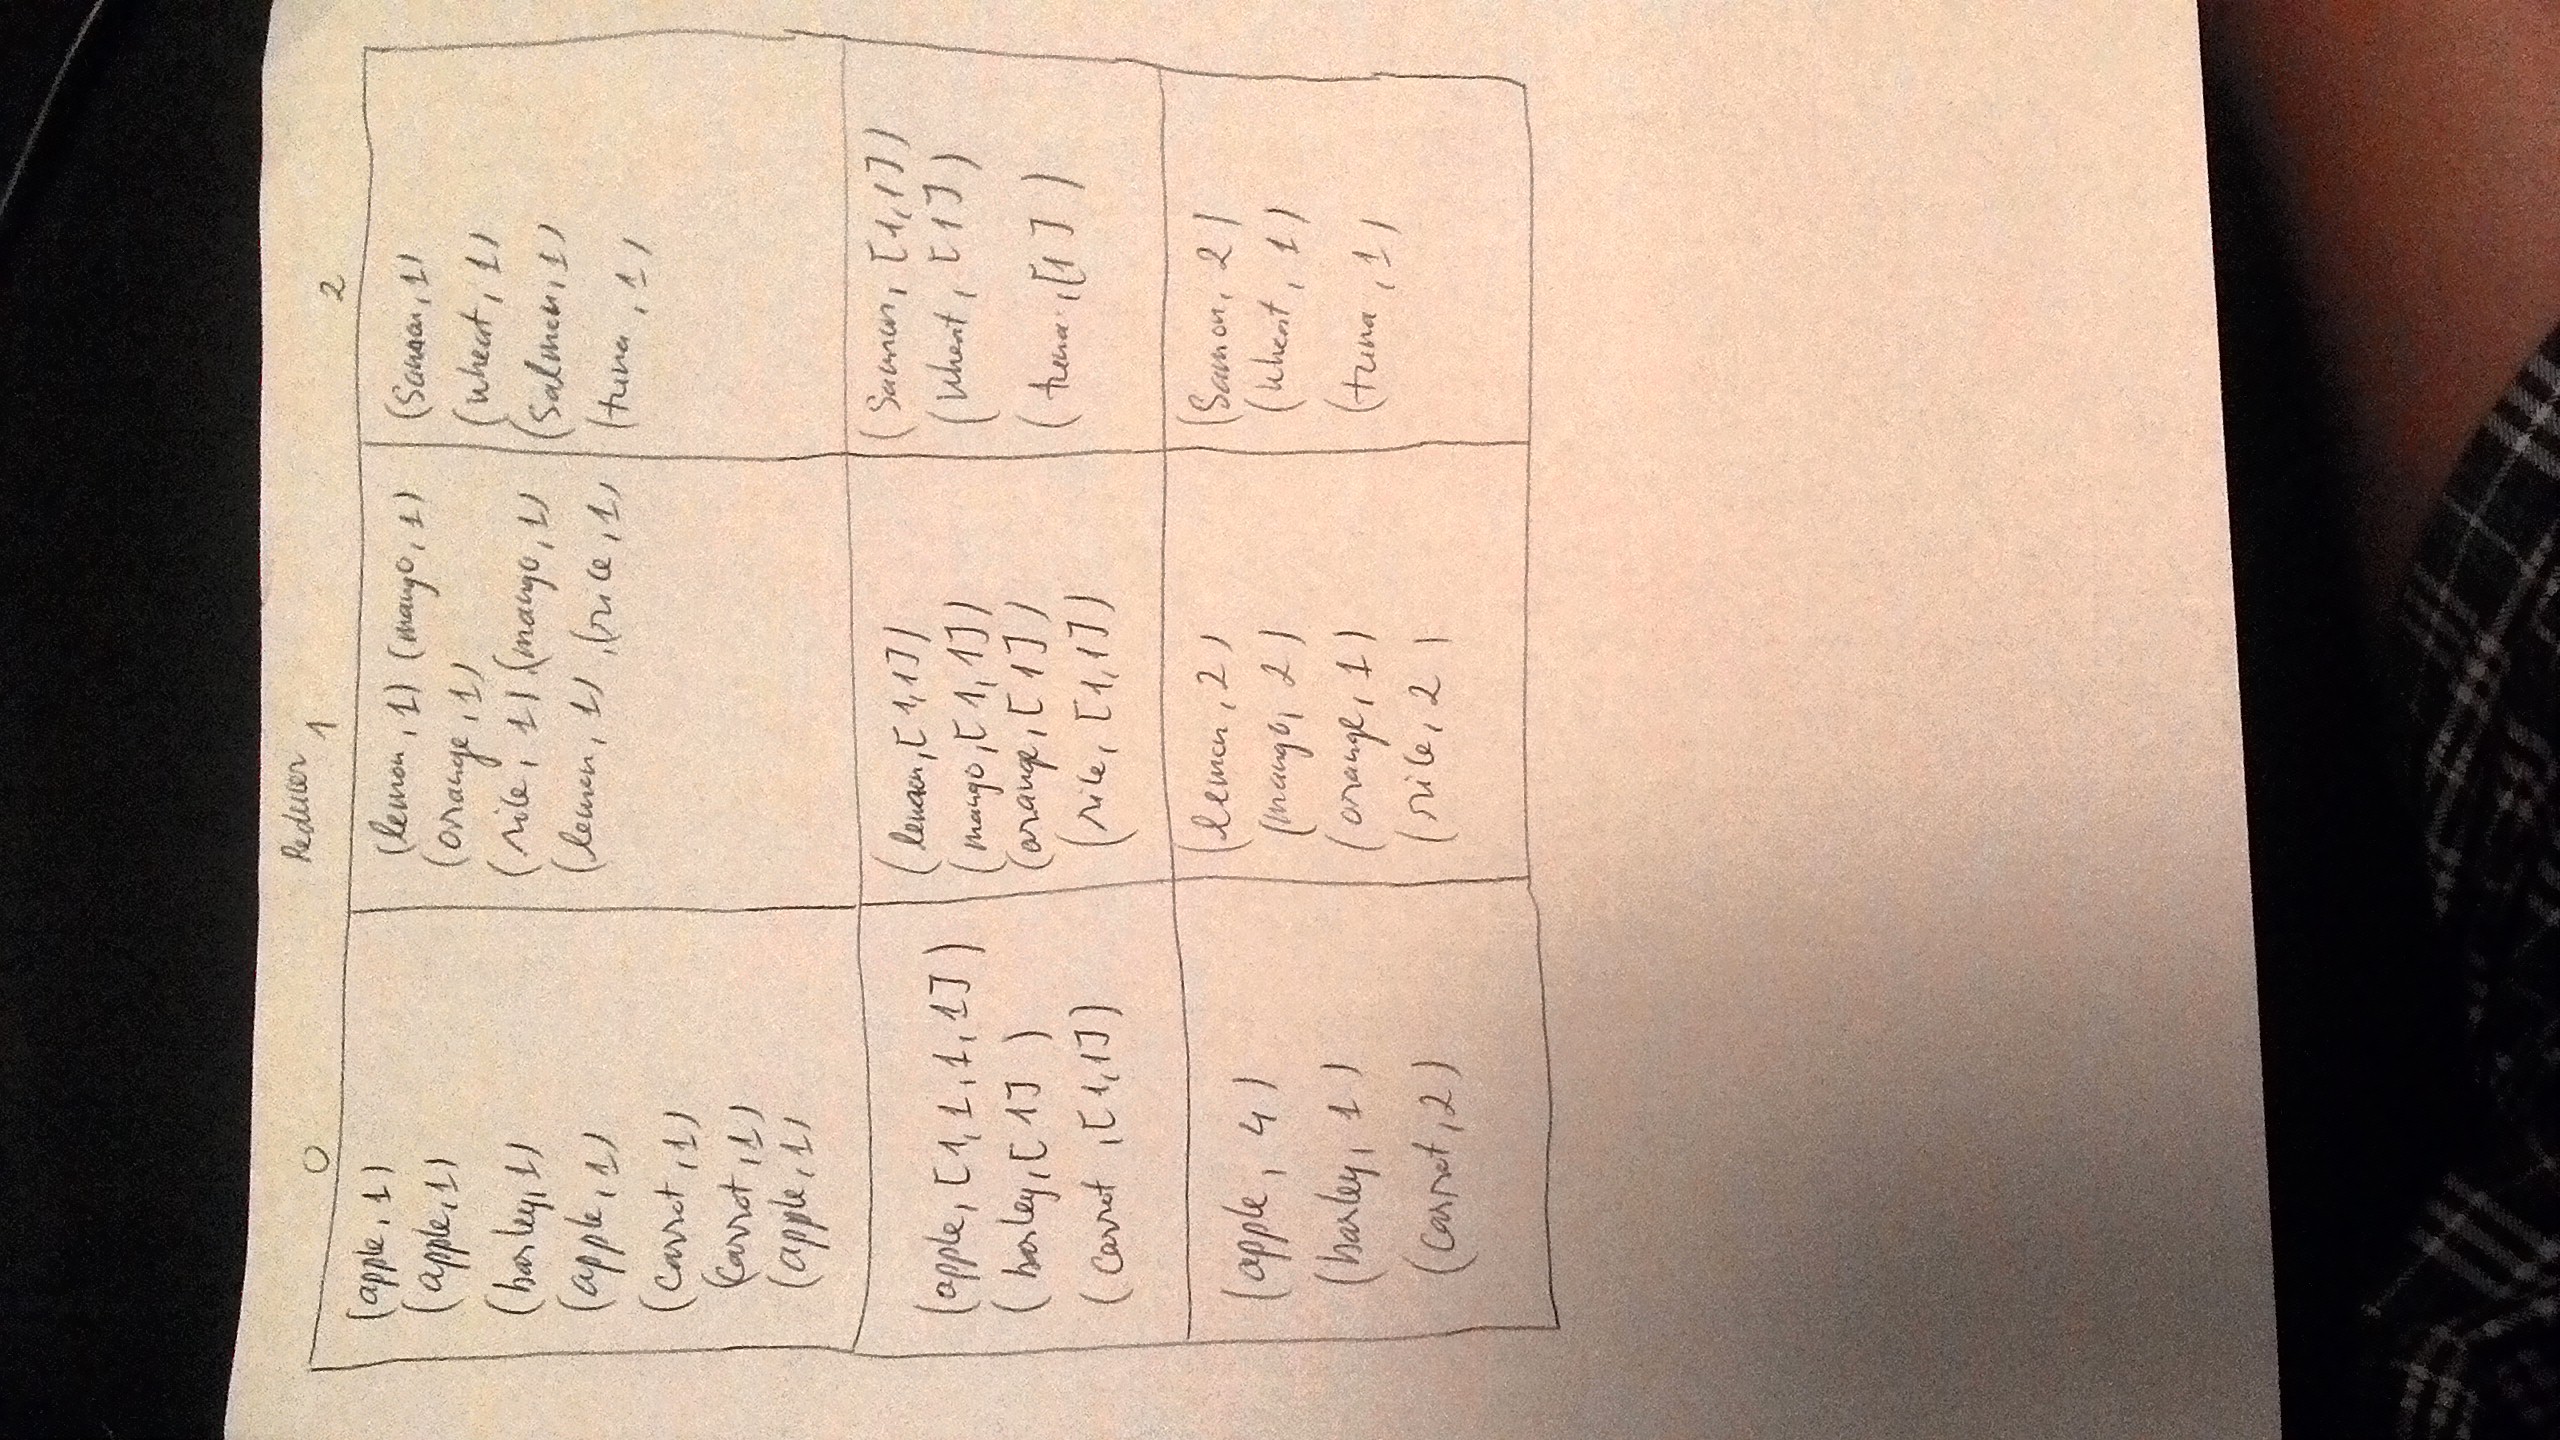 Reducer
0 1 2
(apple, 1)
(apple, 1)
(barley, 1)
(apple, 1)
(carrot, 1)
(carrot, 1)
(apple, 1)
(lemon, 1) (mango, 1)
(orange, 1)
(rice, 1) (mango, 1)
(lemon, 1), (rice, 1)
(Samon, 1)
(wheat, 1)
(Salmon, 1)
(tuna, 1)
(apple, [1, 1, 1, 1])
(barley, [1])
(carrot, [1, 1])
(lemon, [1, 1])
(mango, [1, 1])
(orange, [1])
(rice, [1, 1])
(Samon, [1, 1])
(wheat, [1])
(tuna, [1])
(apple, 4)
(barley, 1)
(carrot, 2)
(lemon, 2)
(mango, 2)
(orange, 1)
(rice, 2)
(Samon, 2)
(wheat, 1)
(tuna, 1)